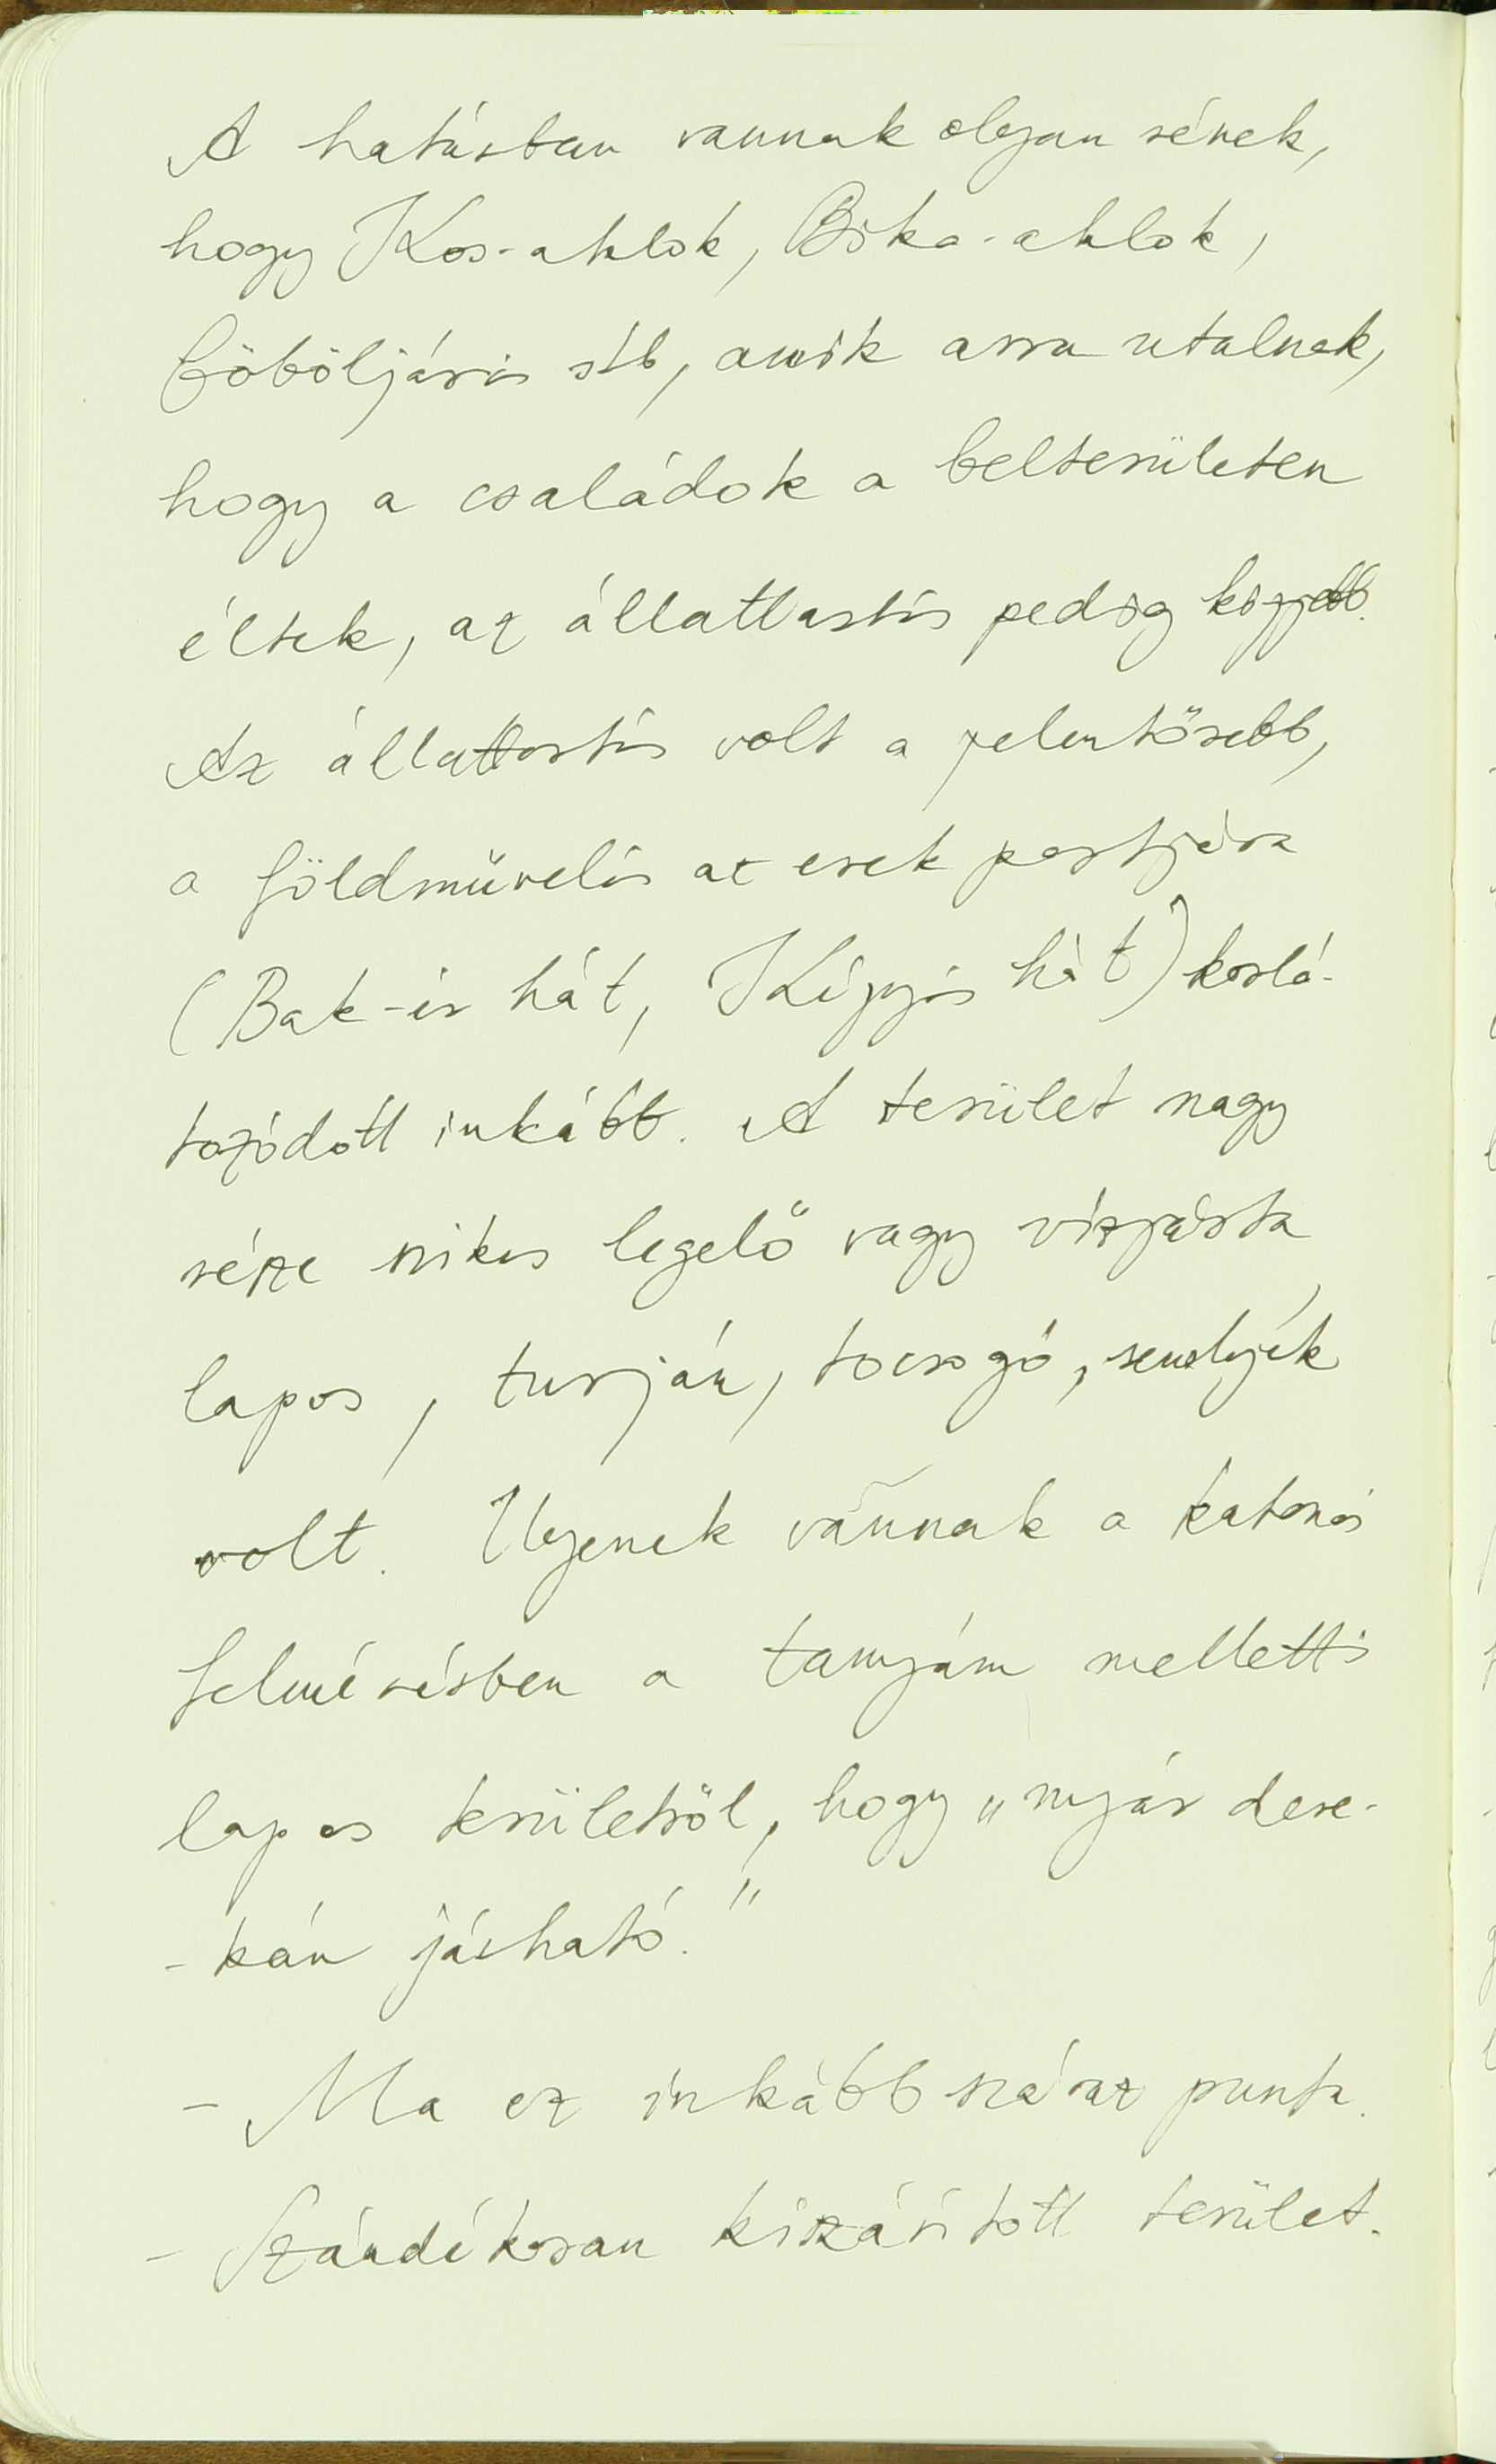 A határban vannak olyan részek,
hogy Kos-aklok, Bika-aklok,
Göböljárás stb, amik arra utalnak,
hogy a családok a belterületen
éltek, az állattartás pedig kijjebb.
Az állattartás volt a jelentősebb,
a földművelés az erek partjára
(Bak-ér hát, Kígyós hát) korlá-
tozódott inkább. A terület nagy
része szikes legelő vagy vízjárta
lapos, turján, tocsogó, semlyék
volt. Ilyenek vannak a katonai
felmérésben a tanyám melletti
lapos területről, hogy „nyár dere-
-kán járható."
- Ma ez inkább száraz puszta.
- Szándékosan kiszárított terület.